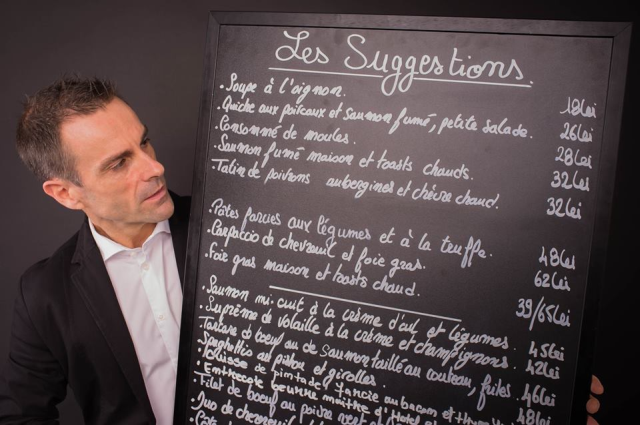 Les Suggestions.
.Soupe à l'oignon. 18Lei
.Quiche aux poireaux et saumon fumé, petite salade. 26Lei
.Consommé de moules. 28Lei
.Saumon fumé maison et toasts chauds. 32Lei
poivrons aubergines et chèvre chaud. 32Lei
.Pâtes farcies aux légumes et à la truffe. 48Lei
.Carpaccio de chevreuil et foie gras. 62Lei
.Foie gras maison et toasts chaud. 39/65Lei
.Saumon mi-cuit à la crème d'ail et légumes. 45Lei
.Suprême de volaille à la crème et champignons. 42Lei
.Tartare de boeuf ou de saumon taillé au couteau, frites. 46Lei
.Spaghettis au pistou et girolles. 48Lei
de pintade farcie au bacon et
.Entrecôte beurre maître d'Hôtel
.Filet de boeuf au poivre vert
.Duo de chevreuil